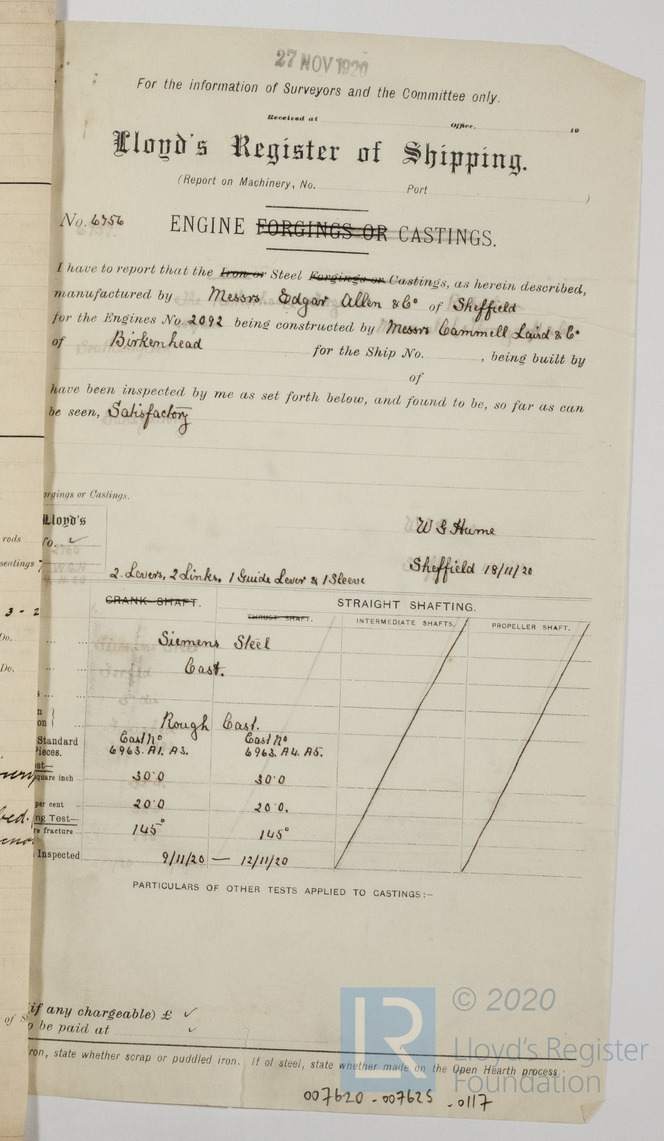 27 NOV 1920
For the information of Surveyors and the Committee only.
Received at Office, 19
Lloyd's Register of Shipping.
(Report on Machinery, No. Port )
No. 6756
ENGINE FORGINGS OR CASTINGS.
I have to report that the Iron or Steel Forgings or Castings, as herein described,
manufactured by Messrs Edgar Allen & Co of Sheffield
for the Engines No. 2092 being constructed by Messrs Cammell Laird & Co
of Birkenhead for the Ship No. , being built by
of
have been inspected by me as set forth below, and found to be, so far as can
be seen, Satisfactory
orgings or Castings.
Lloyd's
rods
No. ✓
W G Hume
seatings
Sheffield 18/11/20
2 Levers, 2 Links, 1 Guide Lever & 1 Sleeve
CRANK SHAFT. STRAIGHT SHAFTING.
THRUST SHAFT. INTERMEDIATE SHAFTS. PROPELLER SHAFT.
3 - 2
Do. Siemens Steel
Do. Cast.
on }
Rough Cast.
Standard Cast No Cast No
Pieces. 6963. A1. A3. 6963. A4. A5.
st—
square inch 30.0 30.0
per cent 20.0 20.0.
ng Test—
re fracture 145° 145°
Inspected 9/11/20 — 12/11/20
PARTICULARS OF OTHER TESTS APPLIED TO CASTINGS:—
(if any chargeable) £ ✓
of S
o be paid at ✓
iron, state whether scrap or puddled iron. If of steel, state whether made on the Open Hearth process
LR
© 2020
Lloyd's Register
Foundation
007620 - 007625 - 0117